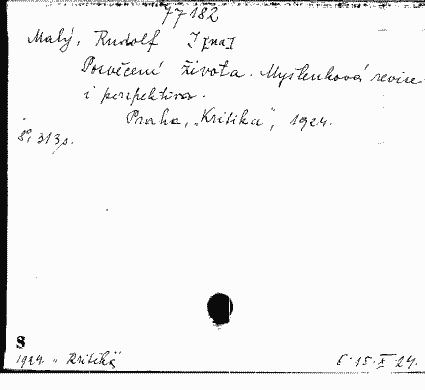 77182
Malý, Rudolf I[na]
Posvěcení života. Myšlenková revise
i perspektiva.
Praha, „Kritika", 1924.
8°, 313 s.
S
1924. „Kritika" 15. X 24.